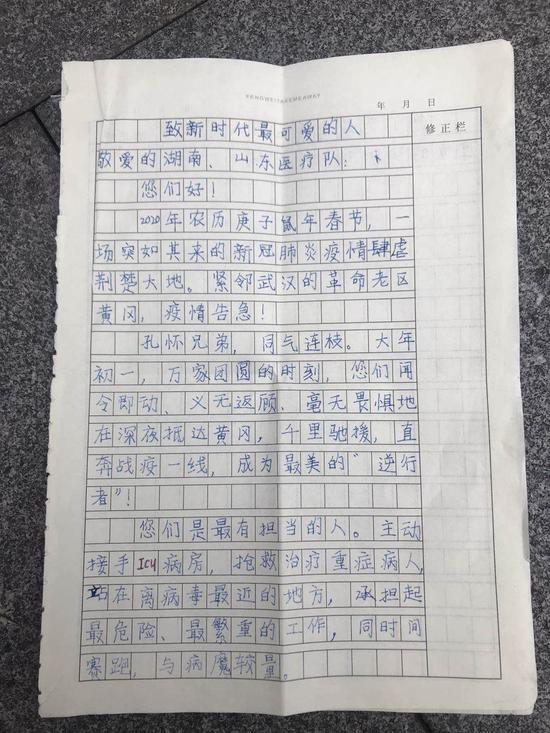 年 月 日
修正栏
致新时代最可爱的人
敬爱的湖南、山东医疗队：
您们好！
2020年农历庚子鼠年春节，一
场突如其来的新冠肺炎疫情肆虐
荆楚大地。紧邻武汉的革命老区
黄冈，疫情告急！
孔怀兄弟，同气连枝。大年
初一，万家团圆的时刻，您们闻
令即动、义无返顾、毫无畏惧地
在深夜抵达黄冈，千里驰援，直
奔战疫一线，成为最美的“逆行
者”！
您们是最有担当的人。主动
接手ICU病房，抢救治疗重症病人，
站在离病毒最近的地方，承担起
最危险、最繁重的工作，同时间
赛跑，与病魔较量。